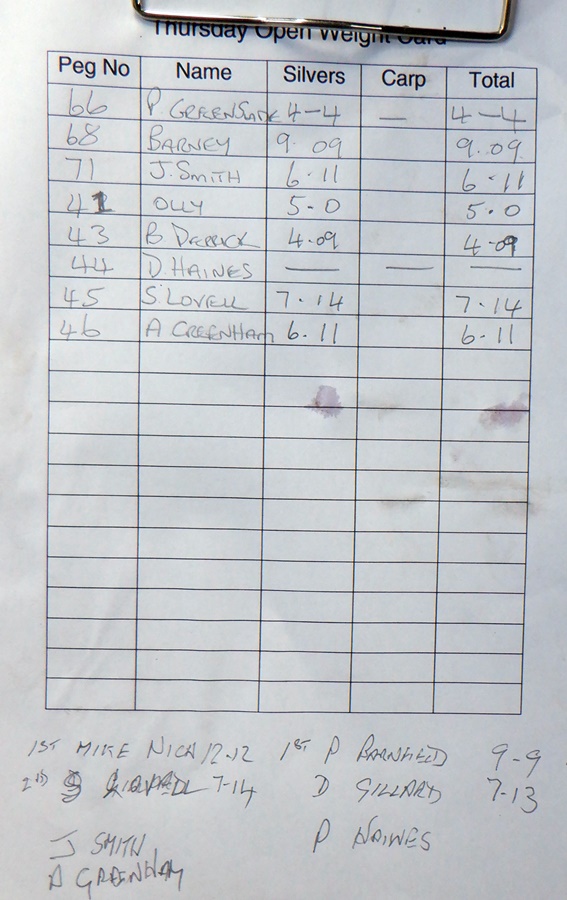 Thursday Open Weight Card
Peg No Name Silvers Carp Total
66 P. GREENSLADE 4-4 — 4-4
68 BARNEY 9.09 9.09
71 J. SMITH 6.11 6.11
41 OLLY 5.0 5.0
43 B DERRICK 4.09 4.09
44 D HAINES — — —
45 S. LOVELL 7.14 7.14
46 A GREENHAM 6.11 6.11
1ST MIKE NICH 12-12 1ST P BARNFIELD 9-9
2ND 7-14 D GILLARD 7-13
J SMITH P HAINES
A GREENHAM